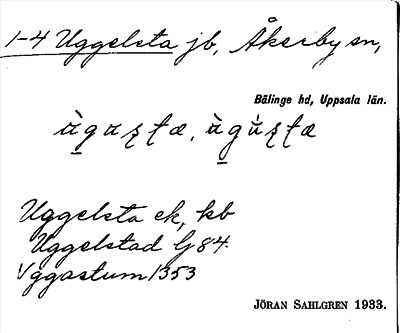 1-4 Uggelsta jb, Åkerby sn,
Bälinge hd, Uppsala län.
Uggelsta ek, kb
Uggelstad G84.
Vggastum 1353
JÖRAN SAHLGREN 1933.